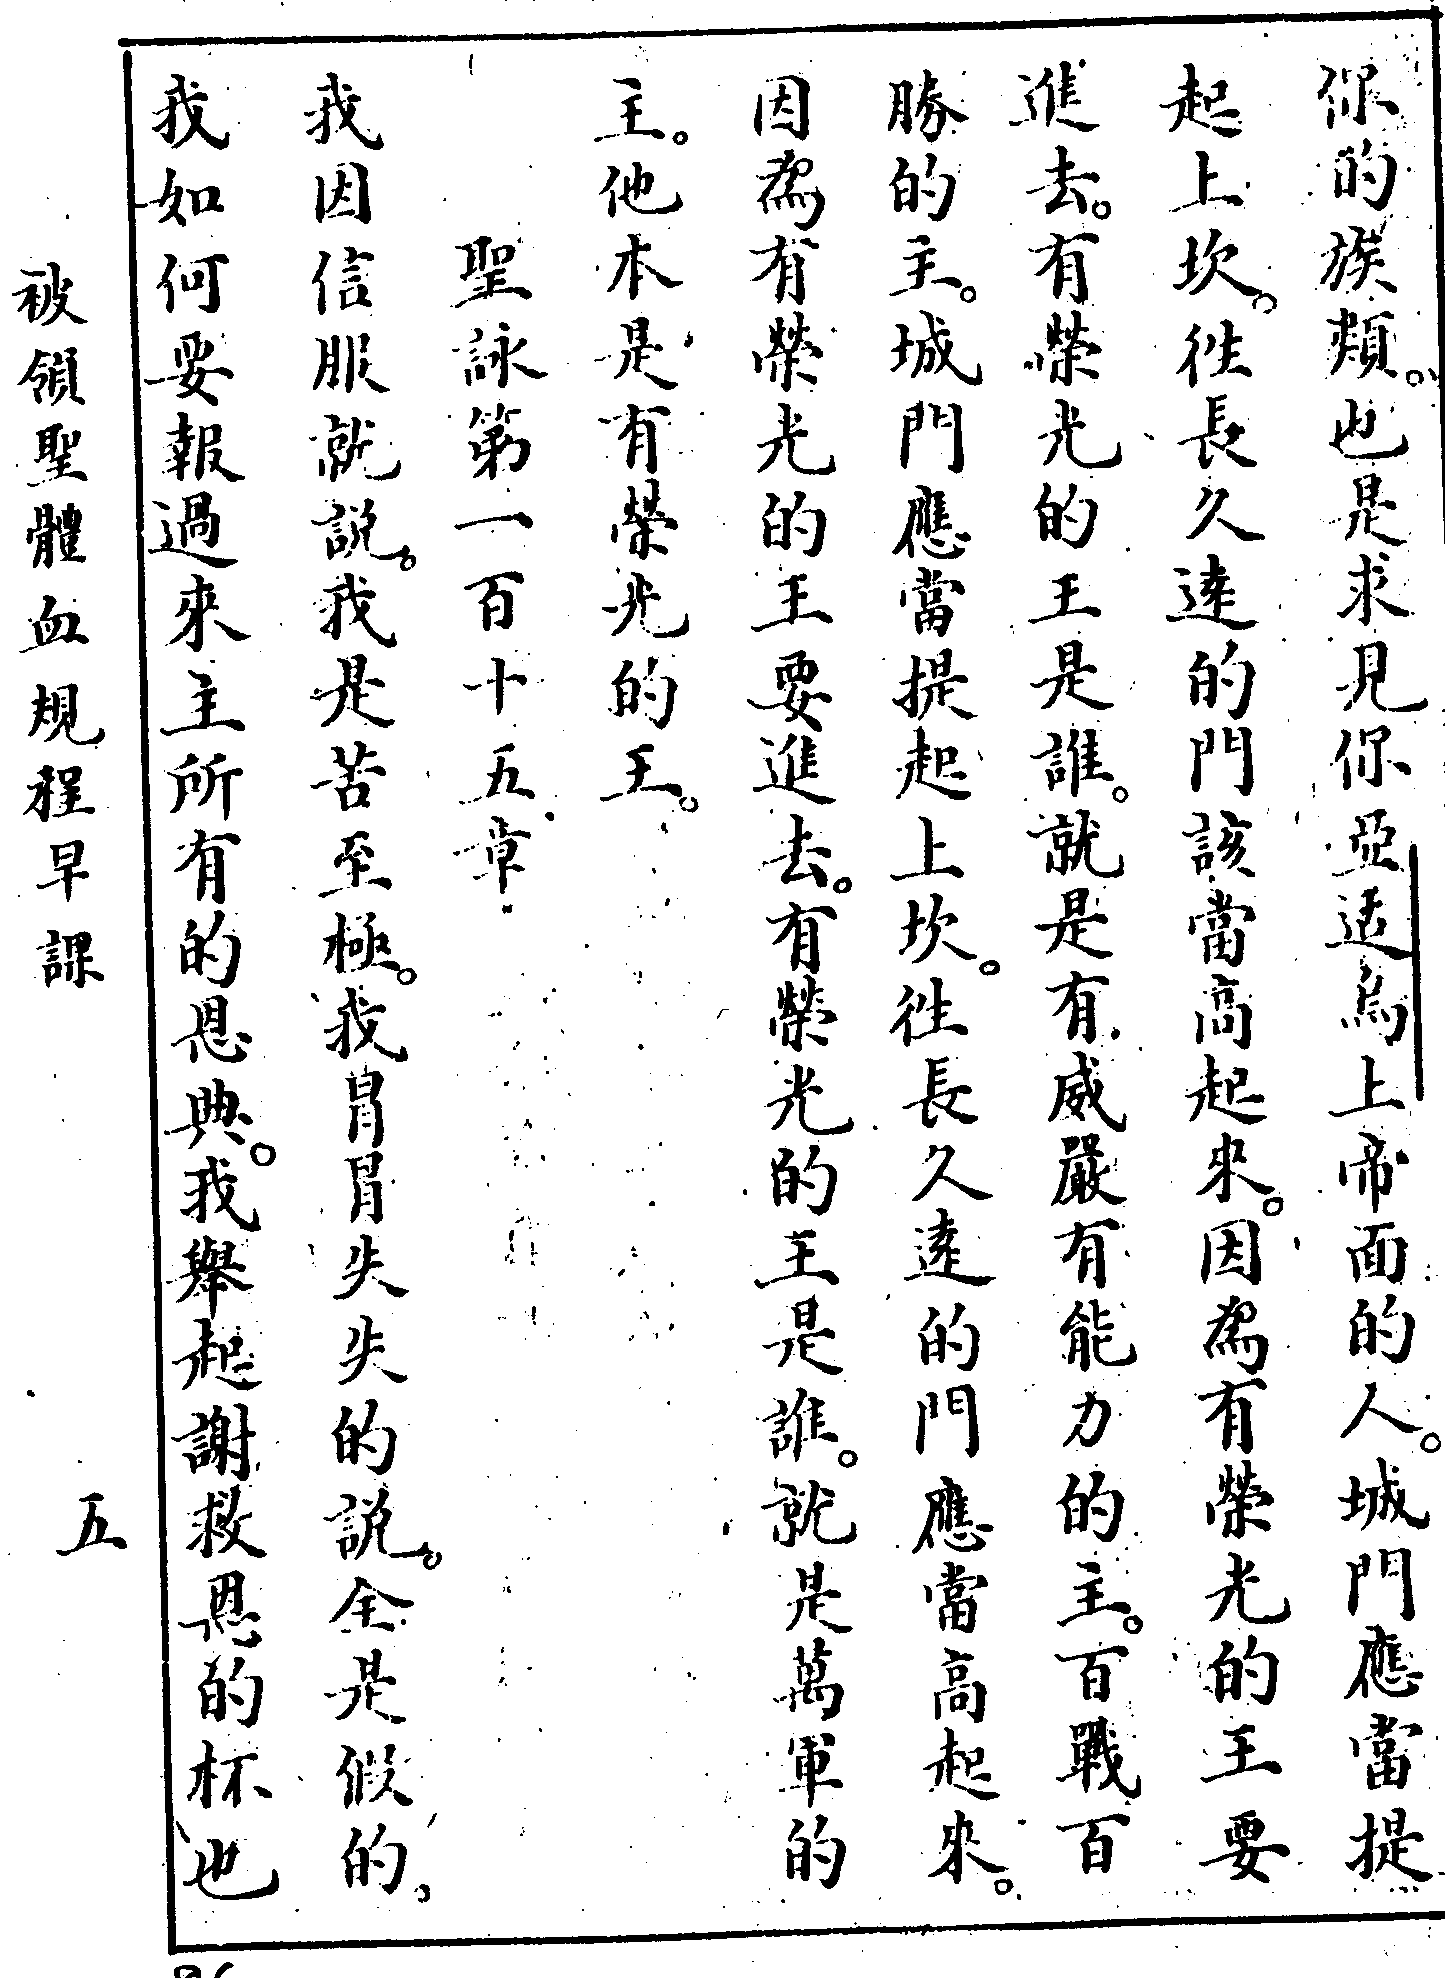 你的族類。也是求見你亞适烏上帝面的人。城門應當提
起上坎。徃長久遠的門該當高起來。因為有榮光的王要
進去。有榮光的王是誰。就是有威嚴有能力的主。百戰百
勝的主。城門應當提起上坎。徃長久遠的門應當高起來。
因為有榮光的王要進去。有榮光的王是誰。就是萬軍的
主。他本是有榮光的王。
聖詠第一百十五章
我因信服就說。我是苦至極。我冒冒失失的說。全是假的。
我如何要報過來主所有的恩典。我舉起謝救恩的杯也
被領聖體血規程早課
五